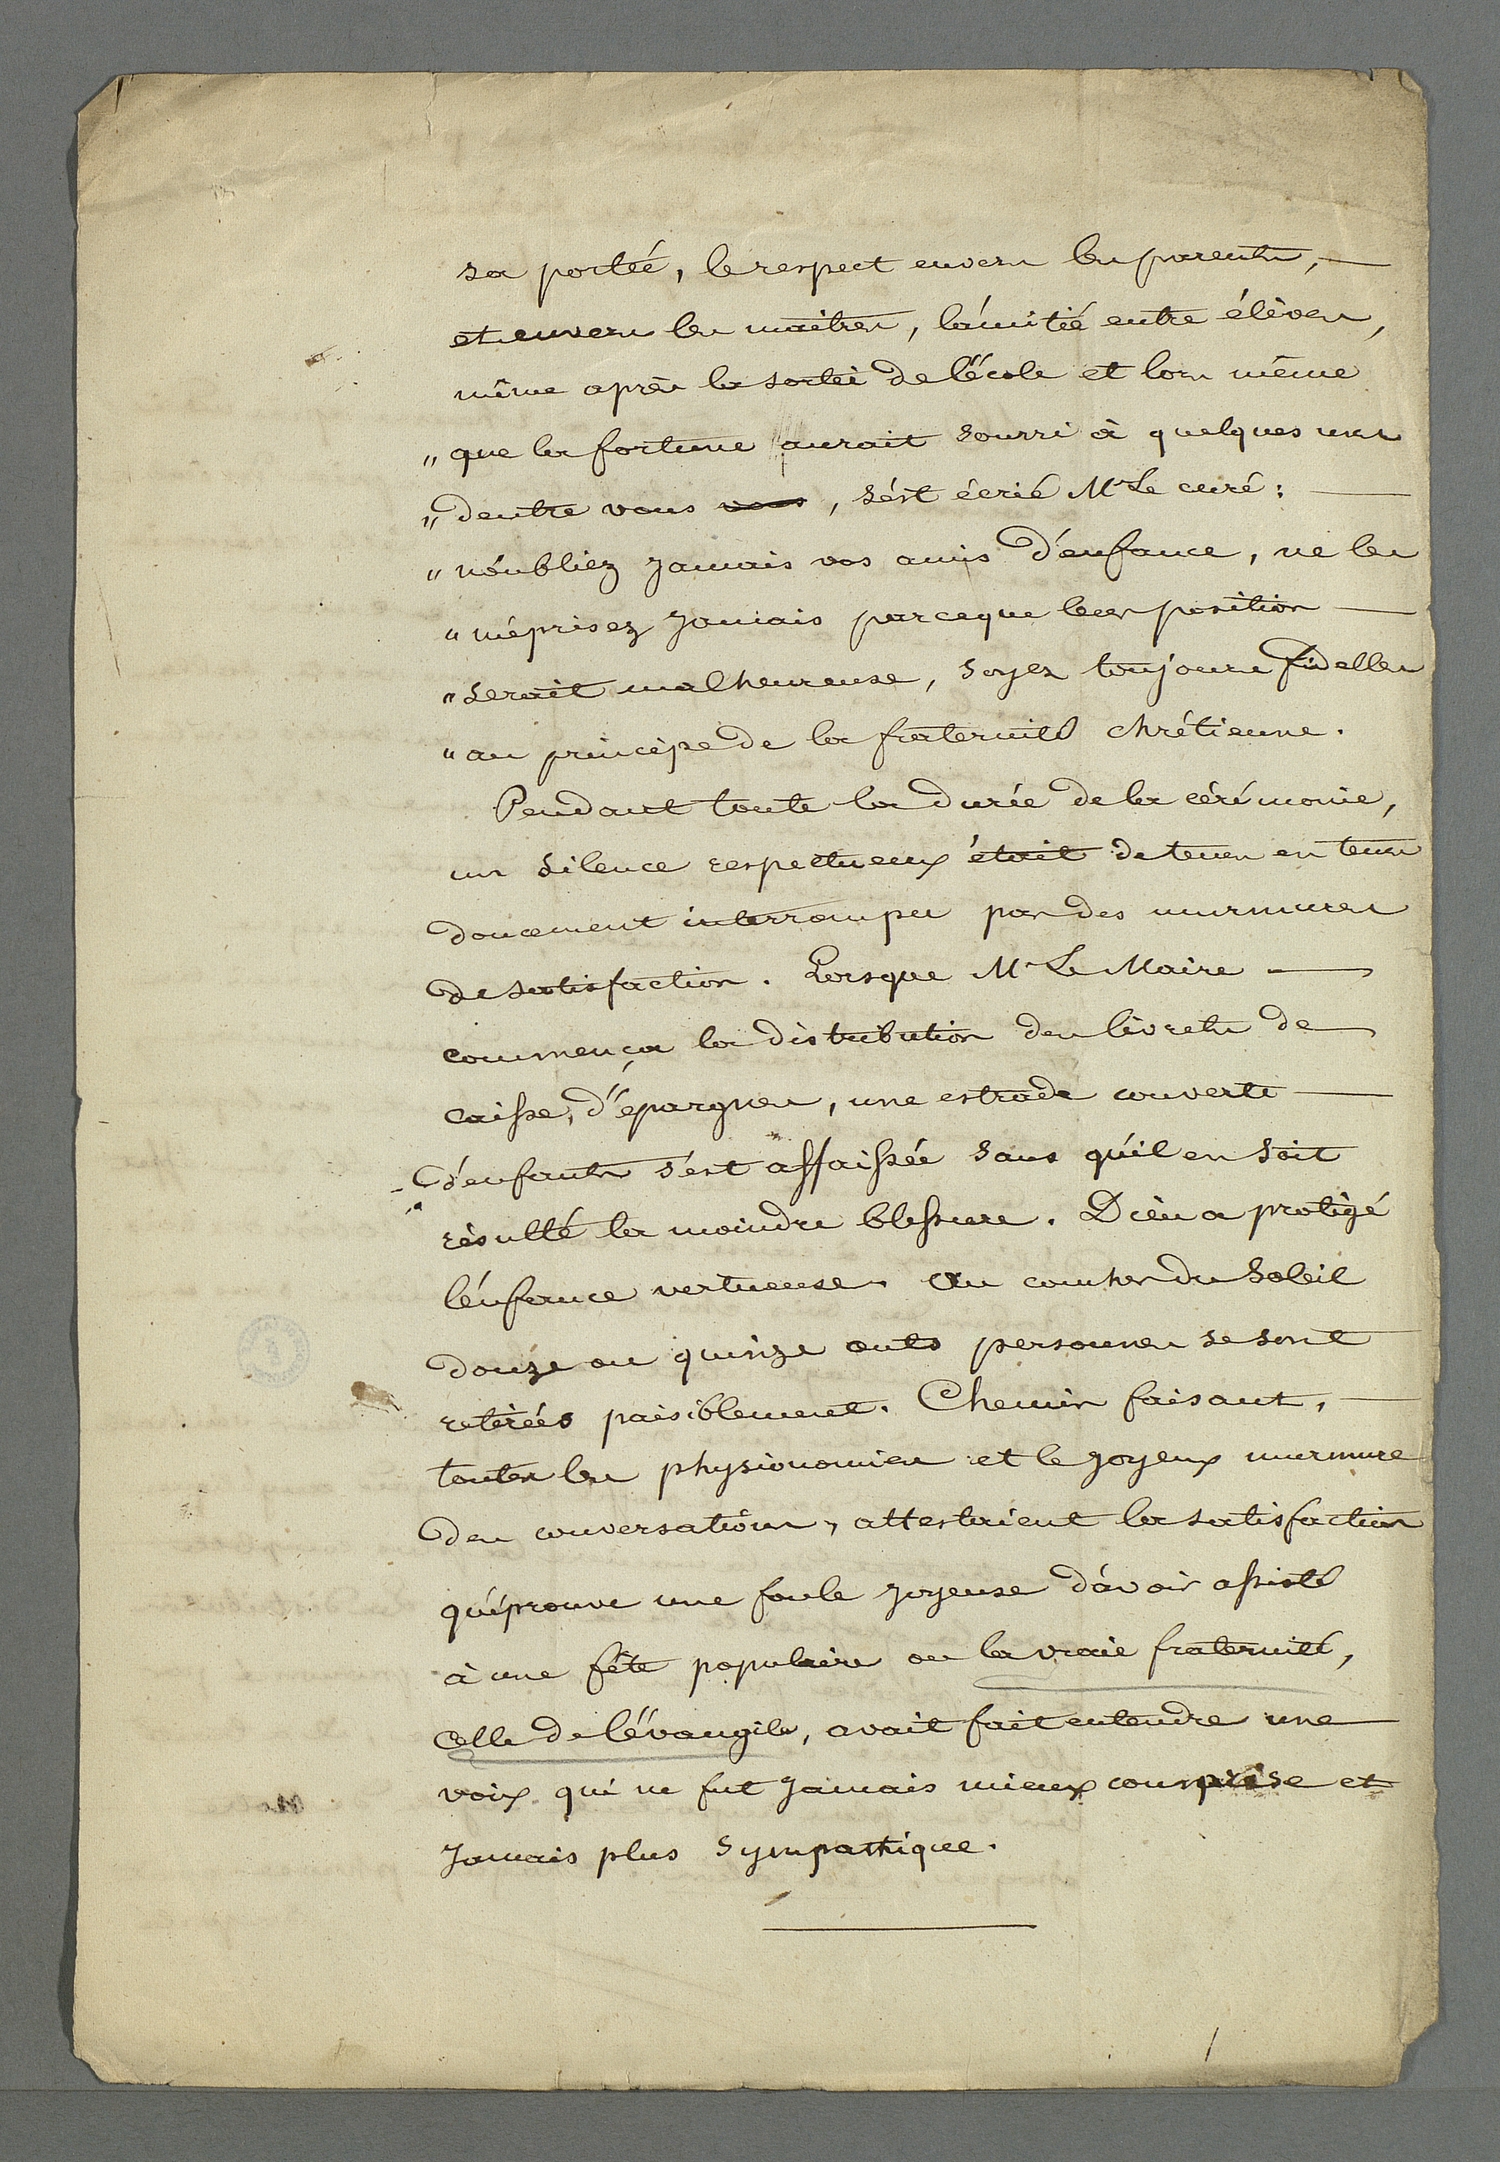 sa portée, le respect envers les parents,
et envers les maitres, l'amitié entre élèves,
même après la sortie de l'école et lors même
" que la fortune aurait souri à quelques uns
" dentre vous vous, s'est écrié Mr Le curé :
" n'oubliez jamais vos amis d'enfance, ne les
" méprisez jamais parceque leur position
" serait malheureuse, soyez toujours fidelles
" au principe de la fraternité chrétienne.
Pendant toute la durée de la cérémonie,
un silence respectueux était de tems en tems
doucement interrompu par des murmures
de satisfaction. Lorsque Mr Le Maire
commença la distribution des livrets de
caisse, d'épargnes, une estrade couverte
d'enfants s'est affaissée sans qu'il en soit
résulté la moindre blessure. Dieu a protégé
l'enfance vertueuse. Au coucher du soleil
douze ou quinze cents personnes se sont
retirées paisiblement. Chemin faisant,
toutes les physionomies et le joyeux murmure
des conversations, attestaient la satisfaction
qu'éprouve une foule joyeuse d'avoir assisté
à une fête populaire ou la vraie fraternité,
celle de l'évangile, avait fait entendre une
voix qui ne fut jamais mieux comprise et
jamais plus sympathique.